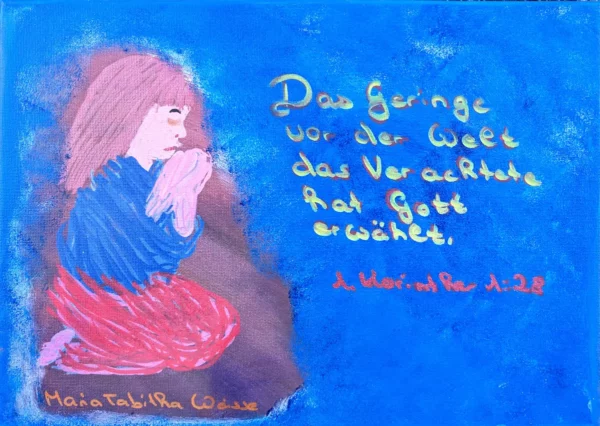 Das Geringe
vor der Welt
das Verachtete
hat Gott
erwählt.
1 Korinther 1:28
Maria Tabitha